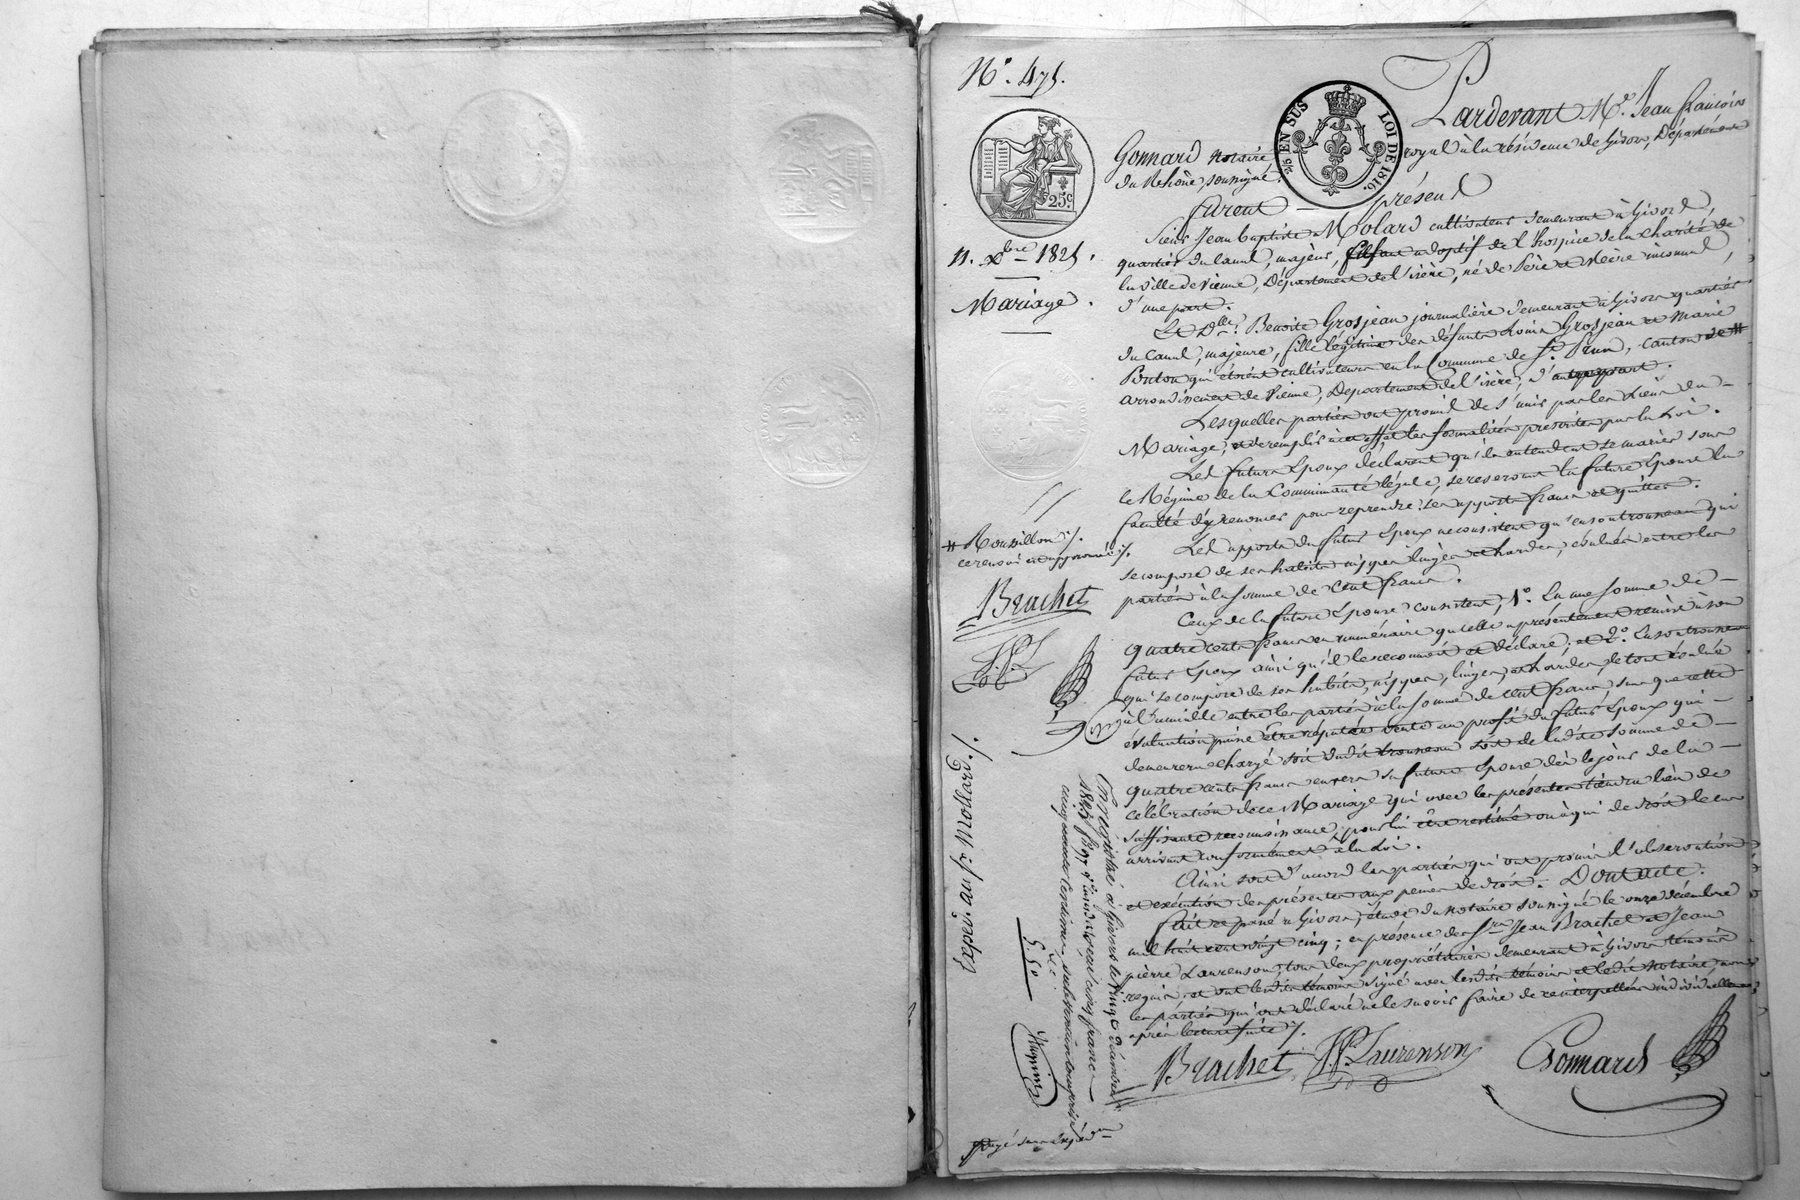 N.° 475.
25 EN SUS LOI DE 1816.
25.c
11. Xbre 1825.
Mariage.
Pardevant Me. Jean françois
Gonnard notaire royal à la résidence de Givors, Département
du Rhône, soussigné.
furent présent
Sieur Jean baptiste Molard cultivateur demeurant à Givord,
quartier du Canal, majeur, fils adoptif de l'hospice de la charité de
la ville de Vienne, Département de l'isère, né de Père et Mère inconnu,
d'une part.
Et Dlle. Benoite Grosjean journalière demeurant à Givors quartier
du Canal, majeure, fille légitime des défunts Louis Grosjean et Marie
Ponton qui étoient cultivateurs en la Commune de St. Prim, canton de #
arrondissement de Vienne, Département de l'isère, d'autre part.
Lesquelles parties ont promis de s'unir par les Liens du
Mariage, et de remplir à cet effet les formalités prescrites par la Loi.
Les futurs Epoux déclarent qu'ils entendent se marier sous
le Régime de la Communauté légale, se réservant la future Epouse la
faculté d'y renoncer pour reprendre ses apports francs et quittes.
Les apports du futur Epoux ne consistent qu'en son trousseau qui
se compose de ses habits nippes linges et hardes, évalués entre les
parties à la somme de Cent francs.
Ceux de la future Epouse consistent, 1.° En une somme de
quatre cents francs en numéraire qu'elle a présentement remise à son
futur Epoux ainsi qu'il le reconnoit et déclare; et 2.° En son trousseau
qui se compose de ses habits, nippes, linges, et hardes, le tout évalué
à l'amiable entre les parties à la somme de cent francs, sans que cette
évaluation puisse être réputée vente au profit du futur Epoux qui
demeurera chargé soit dudit trousseau soit de ladite somme de
quatre cents francs envers sa future Epouse dès le jour de la
célébration de ce Mariage qui avec les présentes tiendra lieu de
suffisante reconnoissance, pour lui être restitué ou à qui de droit le cas
arrivant conformément à la Loi.
Ainsi sont d'accord les parties qui ont promis l'observation
et exécution des présentes aux peines de droit. Dont acte.
Fait et passé à Givors, étude du notaire soussigné le onze décembre
mil huit cent vingt cinq; en présence des Srs. Jean Brachet et Jean
pierre Laurenson, tous deux propriétaires demeurant à Givors témoins
requis, et ont lesdits témoins signé avec ledit notaire, non
les parties qui ont déclaré ne le savoir faire de ce interpellées individuellement
après lecture faite ./.
Brachet JPre Laurenson Gonnard
# Roussillon ./.
ce renvoi est approuvé ./.
Brachet
J.P.L
Expédn. au sr. Mollard ./.
Enregistré à Givors le vingt Décembre
1825 fo. 97
cinq francs
cinquante centimes
5.50
payé sur expédon